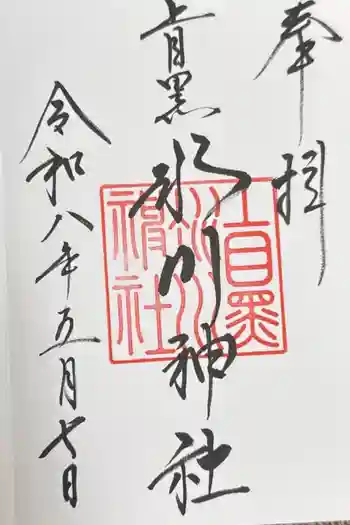 奉拝
上目黒氷川神社
令和八年五月七日
上目黒氷川神社